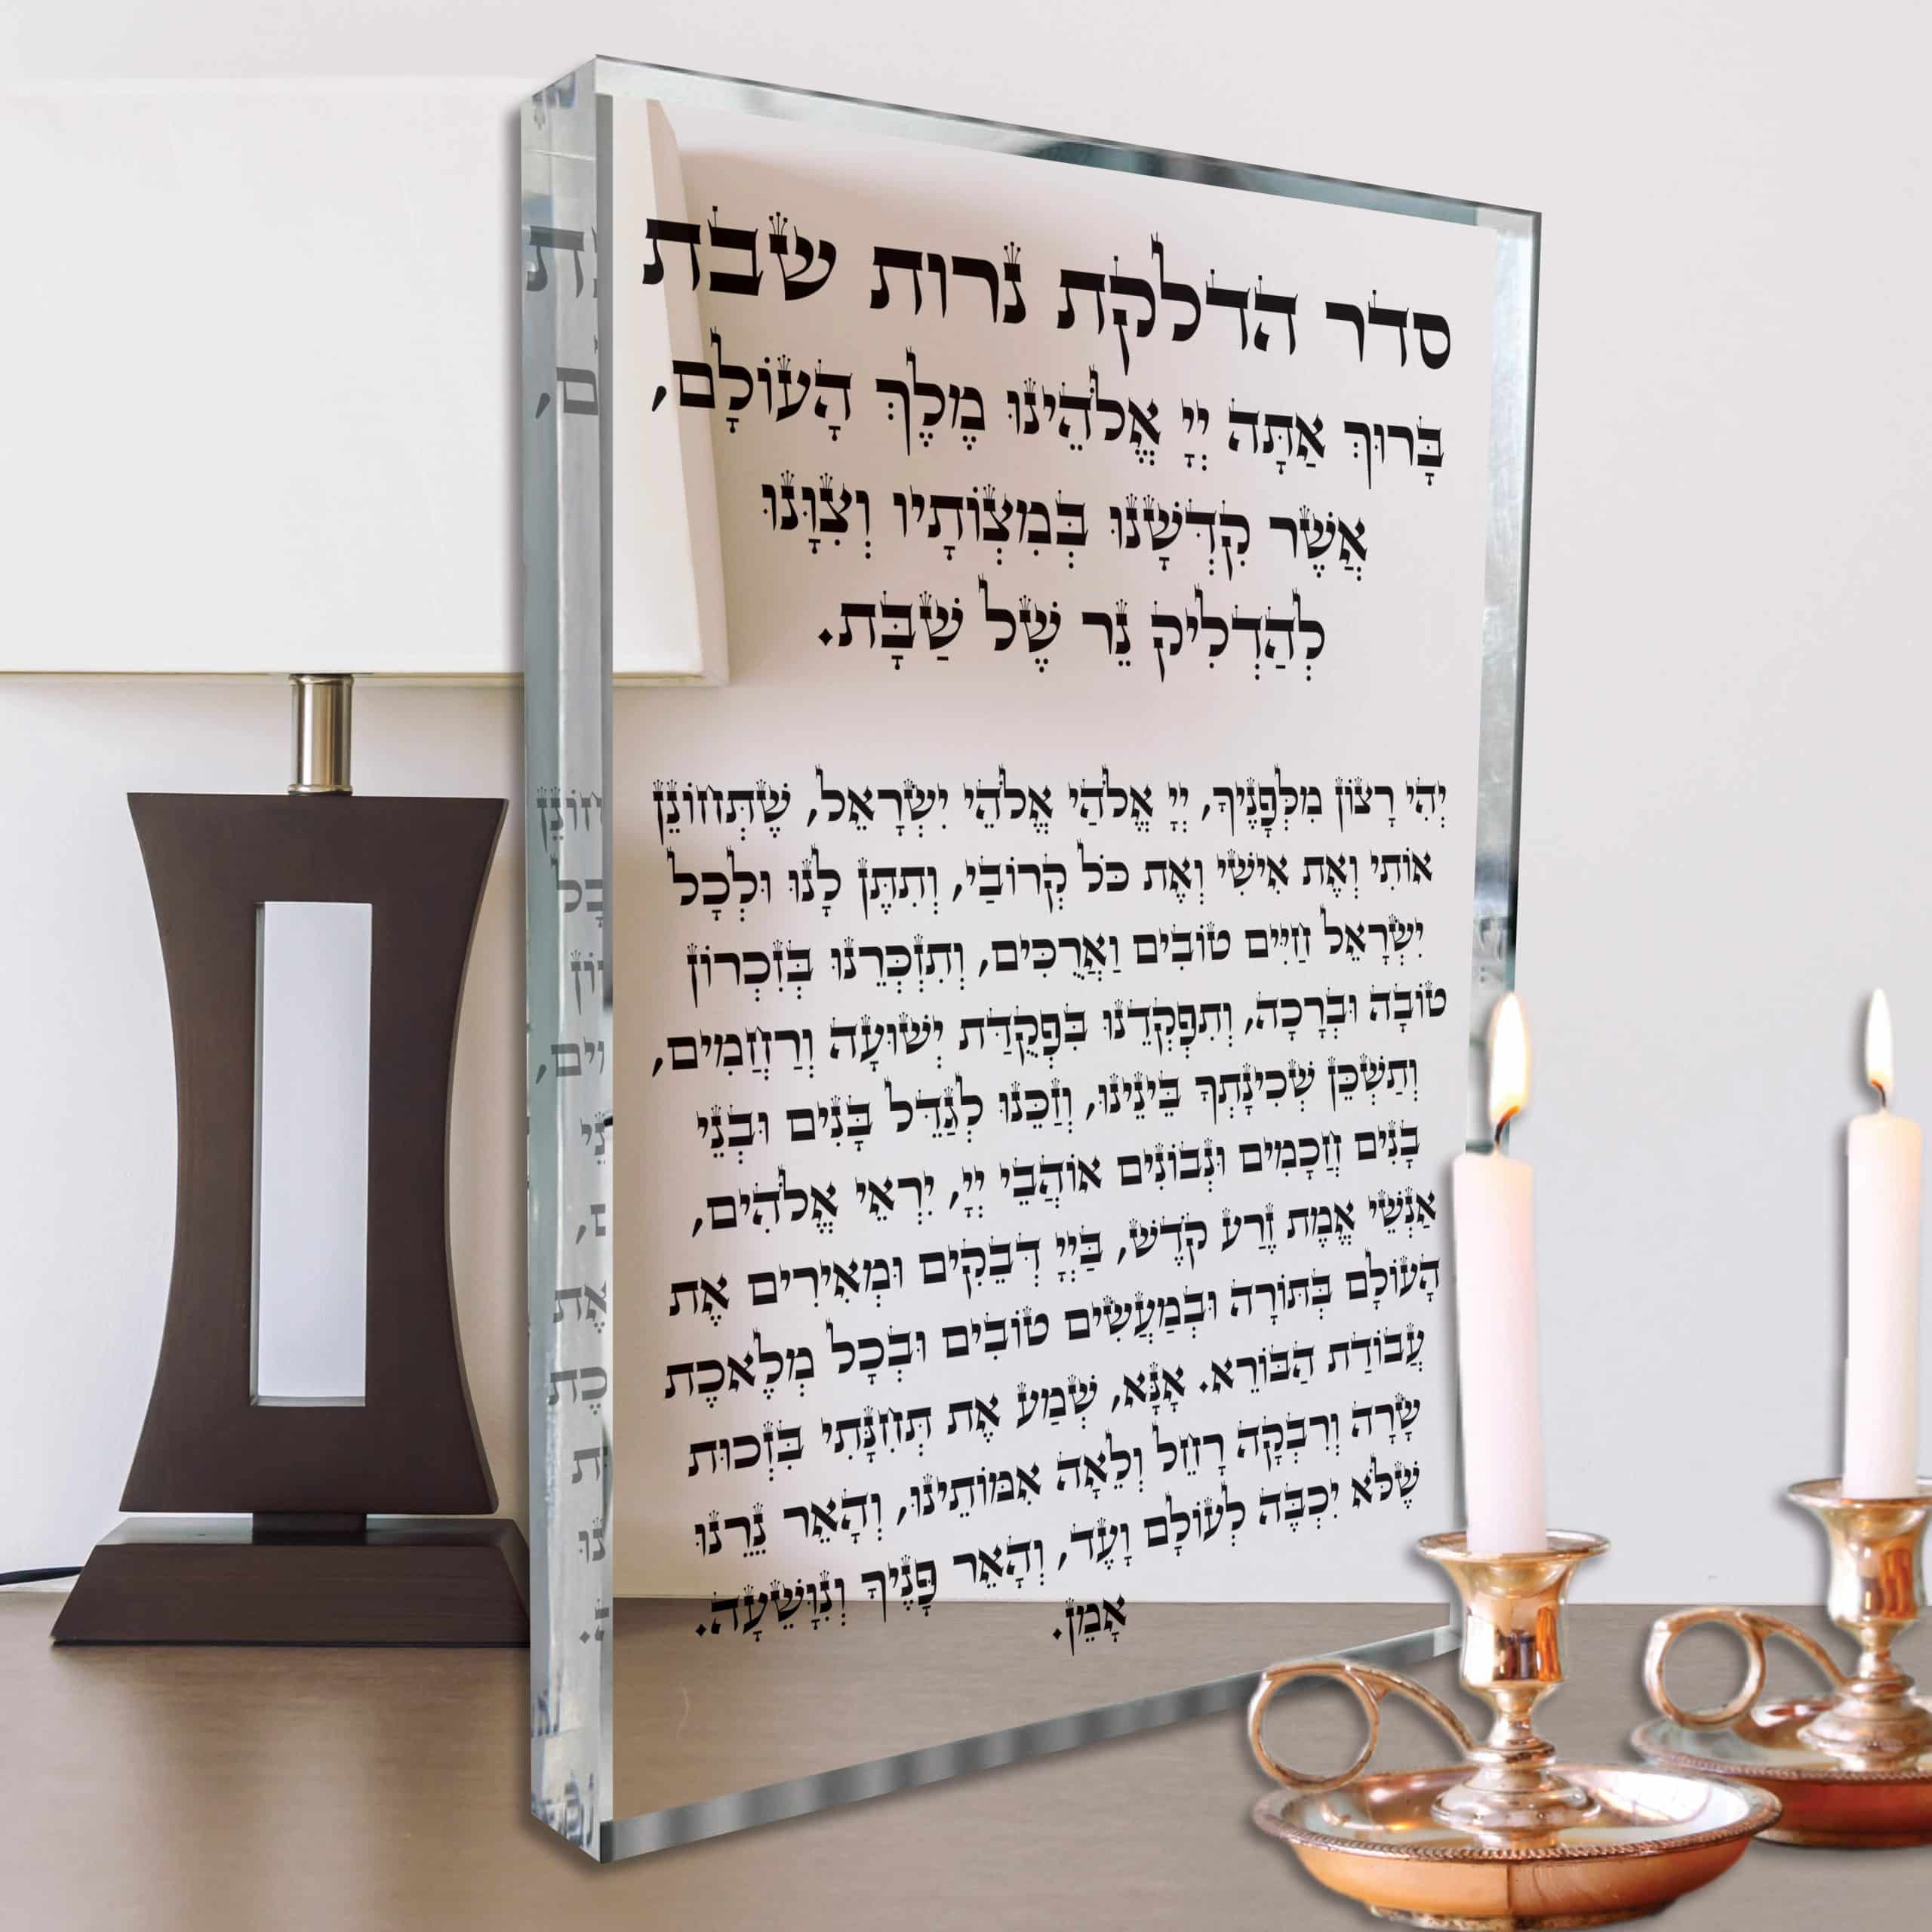 סדר הדלקת נרות שבת
בָּרוּךְ אַתָּה יְיָ אֱלֹהֵינוּ מֶלֶךְ הָעוֹלָם,
אֲשֶׁר קִדְּשָׁנוּ בְּמִצְוֹתָיו וְצִוָּנוּ
לְהַדְלִיק נֵר שֶׁל שַׁבָּת.
יְהִי רָצוֹן מִלְּפָנֶיךָ, יְיָ אֱלֹהַי אֱלֹהֵי יִשְׂרָאֵל, שֶׁתְּחוֹנֵן
אוֹתִי וְאֶת אִישִׁי וְאֶת כֹּל קְרוֹבַי, וְתִתֶּן לָנוּ וּלְכָל
יִשְׂרָאֵל חַיִּים טוֹבִים וַאֲרֻכִּים, וְתִזְכְּרֵנוּ בְּזִכְרוֹן
טוֹבָה וּבְרָכָה, וְתִפְקְדֵנוּ בִּפְקֻדַּת יְשׁוּעָה וְרַחֲמִים,
וְתַשְׁכֵּן שְׁכִינָתְךָ בֵּינֵינוּ, וְזַכֵּנוּ לְגַדֵּל בָּנִים וּבְנֵי
בָנִים חֲכָמִים וּנְבוֹנִים אוֹהֲבֵי יְיָ, יִרְאֵי אֱלֹהִים,
אַנְשֵׁי אֱמֶת זֶרַע קֹדֶשׁ, בַּיְיָ דְּבֵקִים וּמְאִירִים אֶת
הָעוֹלָם בְּתּוֹרָה וּבְמַעֲשִׂים טוֹבִים וּבְכָל מְלֶאכֶת
עֲבוֹדַת הַבּוֹרֵא. אָנָּא, שְׁמַע אֶת תְּחִנָּתִי בִּזְכוּת
שָׂרָה וְרִבְקָה רָחֵל וְלֵאָה אִמּוֹתֵינוּ, וְהָאֵר נֵרֵנוּ
שֶׁלֹּא יִכְבֶּה לְעוֹלָם וָעֶד, וְהָאֵר פָּנֶיךָ וְנִוָּשֵׁעָה.
אָמֵן.